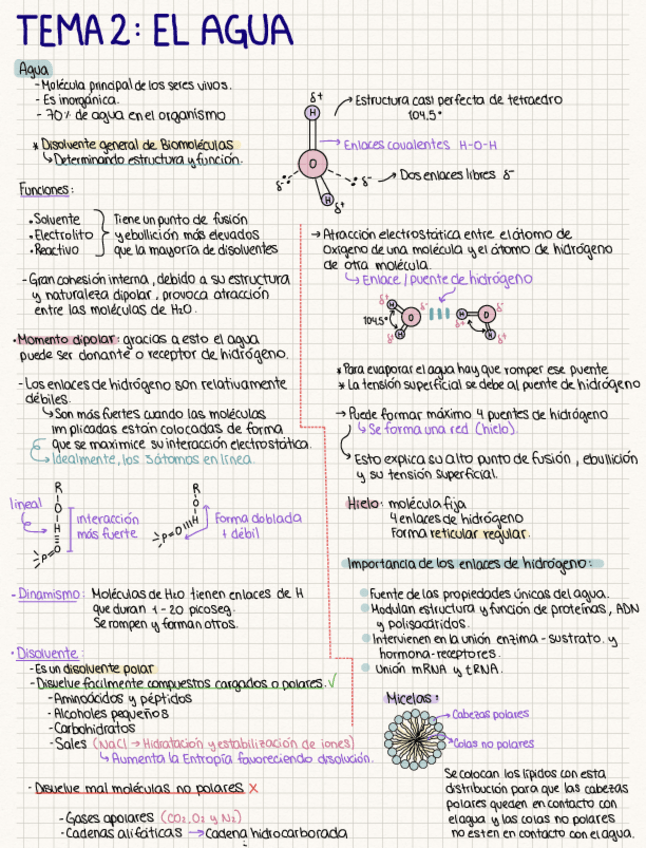 TEMA 2: EL AGUA
Agua
- Molécula principal de los seres vivos.
- Es inorgánica.
- 70% de agua en el organismo
* Disolvente general de Biomoléculas
↳ Determinando estructura y función.
Funciones:
• Solvente
• Electrolito
• Reactivo
Tiene un punto de fusión
y ebullición más elevados
que la mayoría de disolventes
- Gran cohesión interna, debido a su estructura
y naturaleza dipolar, provoca atracción
entre las moléculas de H2O.
• Momento dipolar: gracias a esto el agua
puede ser donante o receptor de hidrógeno.
- Los enlaces de hidrógeno son relativamente
débiles.
↳ Son más fuertes cuando las moléculas
implicadas están colocadas de forma
que se maximice su interacción electrostática.
→ Idealmente, los 3 átomos en línea.
lineal
R
O
H
O
-P=O
interacción
más fuerte
R
O
H
-P=O
Forma doblada
+ débil
- Dinamismo: Moléculas de H2O tienen enlaces de H
que duran 1-20 picoseg.
Se rompen y forman otros.
• Disolvente:
- Es un disolvente polar
- Disuelve facilmente compuestos cargados o polares. ✓
- Aminoácidos y péptidos
- Alcoholes pequeños
- Carbohidratos
- Sales (NaCl → Hidratación y estabilización de iones)
↳ Aumenta la Entropía favoreciendo disolución.
- Disuelve mal moléculas no polares X
- Gases apolares (CO2, O2 y N2)
- Cadenas alifáticas → Cadena hidrocarborada
δ+
H
O
H
δ+
δ-
δ-
→ Estructura casi perfecta de tetraedro
104,5°
→ Enlaces covalentes H-O-H
→ Dos enlaces libres δ-
→ Atracción electrostática entre el átomo de
Oxígeno de una molécula y el átomo de hidrógeno
de otra molécula.
↳ Enlace / puente de hidrógeno
104,5°
δ+
H
O
δ-
H
δ+
δ+
H
O
δ-
H
δ+
* Para evaporar el agua hay que romper ese puente
* La tensión superficial se debe al puente de hidrógeno
→ Puede formar máximo 4 puentes de hidrógeno
↳ Se forma una red (hielo).
Esto explica su alto punto de fusión, ebullición
y su tensión superficial.
Hielo: molécula fija
4 enlaces de hidrógeno
Forma reticular regular.
Importancia de los enlaces de hidrógeno:
Fuente de las propiedades únicas del agua.
Modulan estructura y función de proteínas, ADN
y polisacáridos.
Intervienen en la unión enzima-sustrato y
hormona-receptores.
Unión mRNA y tRNA.
Micelas:
→ Cabezas polares
→ Colas no polares
Se colocan los lípidos con esta
distribución para que las cabezas
polares queden en contacto con
el agua y las colas no polares
no esten en contacto con el agua.